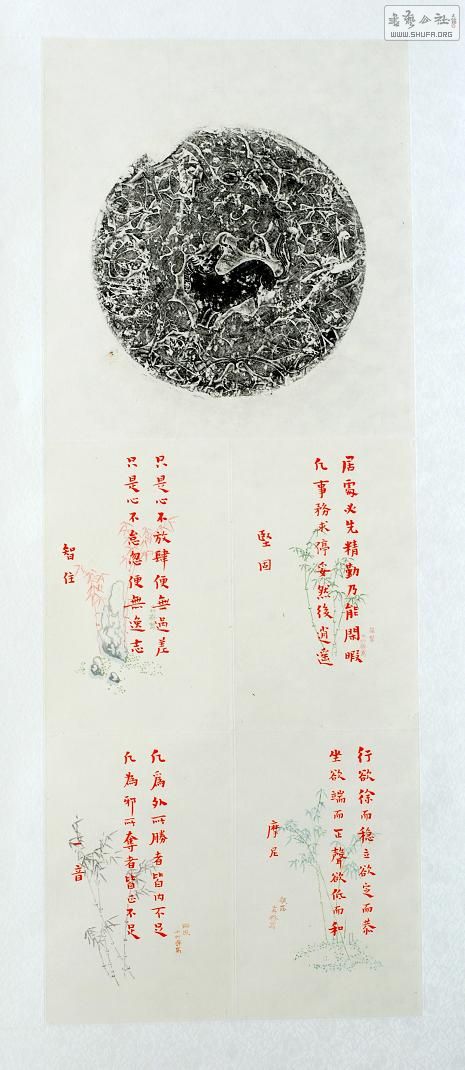 書藝公社
WWW.SHUFA.ORG
居處必先精勤乃能閑暇
凡事務求停妥然後逍遙
堅固
只是心不放肆便無過差
只是心不怠忽便無逸志
智住
行欲徐而穩立欲定而恭
坐欲端而正聲欲低而和
摩尼
凡為外所勝者皆內不足
凡為邪所奪者皆正不足
一音